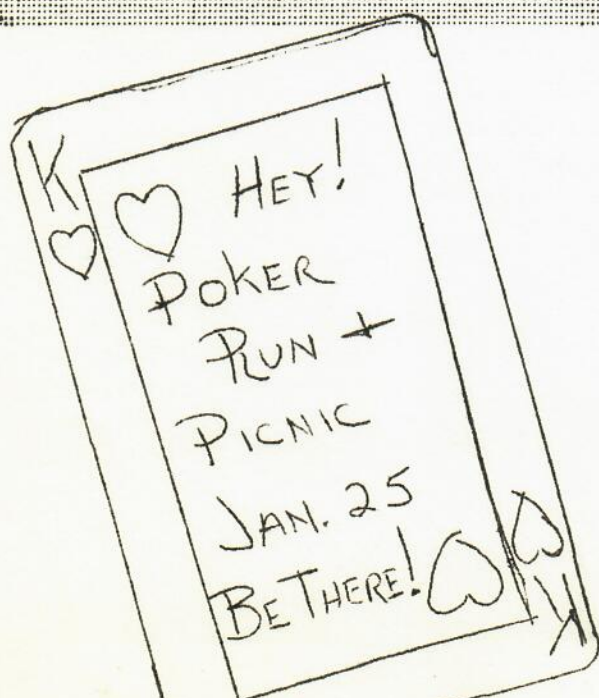 K
HEY!
POKER
RUN +
PICNIC
JAN. 25
BE THERE!
K